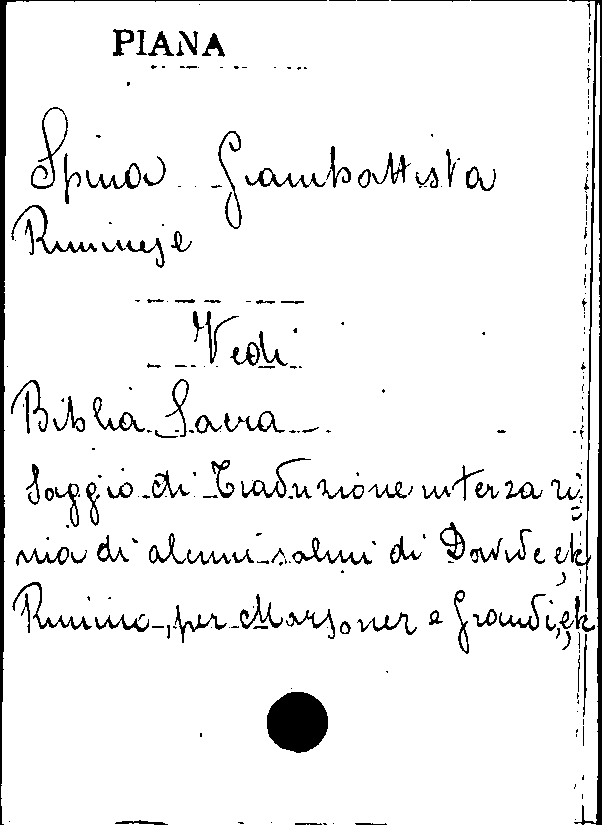 PIANA
Spina Giambattista
Riminese
Vedi
Biblia Sacra
Saggio di Traduzione in terza ri=
ma di alcuni salmi di Davide, etc
Rimino, per Marsoner e Grandi, etc